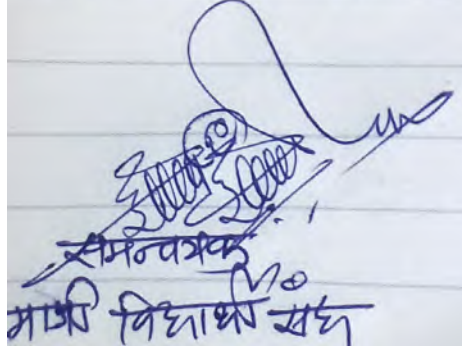 समन्वयक
माजी विद्यार्थी संघ